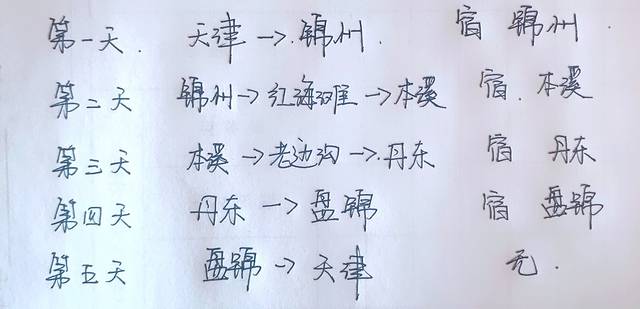 第一天. 天津→锦州. 宿 锦州.
第二天 锦州→红海滩→本溪 宿. 本溪
第三天 本溪→老边沟→丹东 宿 丹东
第四天 丹东→盘锦 宿 盘锦
第五天 盘锦→天津 无.